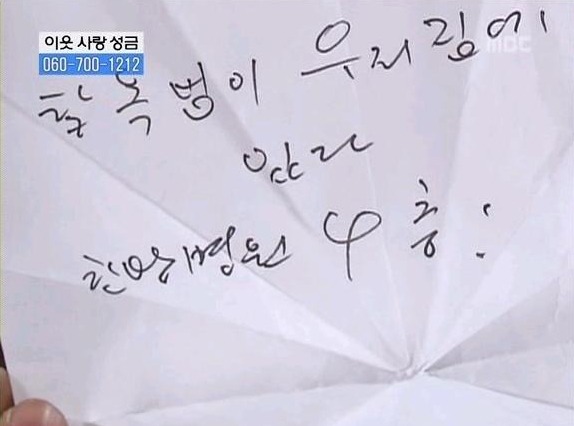 이웃 사랑 성금
060-700-1212
MBC
탈옥범이 우리집에
있다
한양병원 4층!